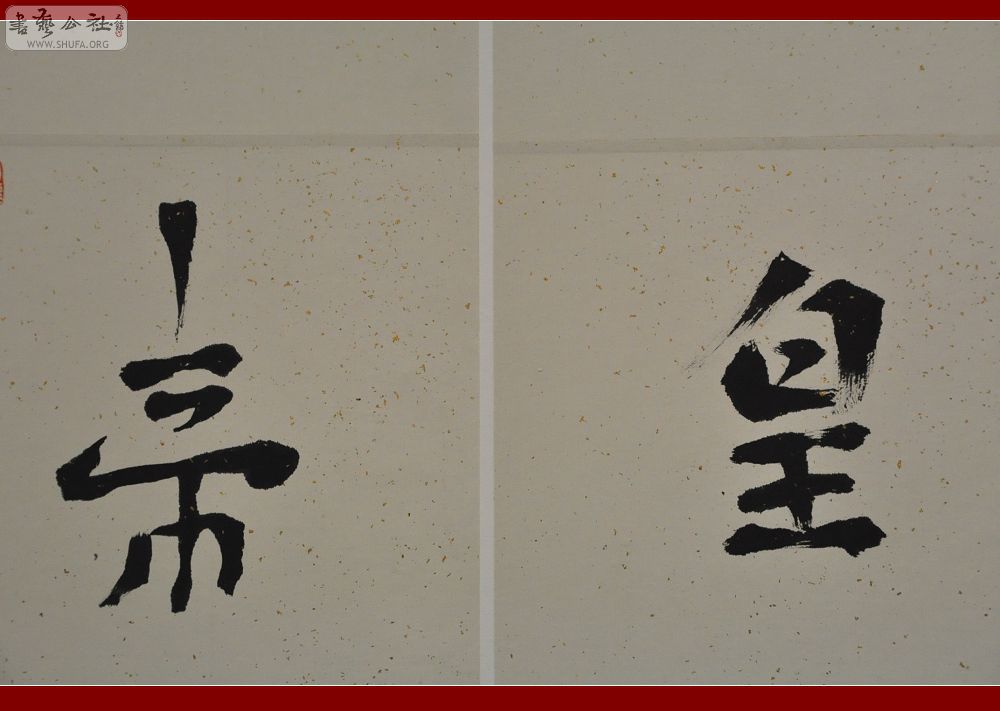 書藝公社
WWW.SHUFA.ORG
皇
帝